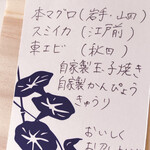 本マグロ(岩手・山田)
スミイカ(江戸前)
車エビ(秋田)
自家製玉子焼き
自家製かんぴょう
きゅうり
おいしく